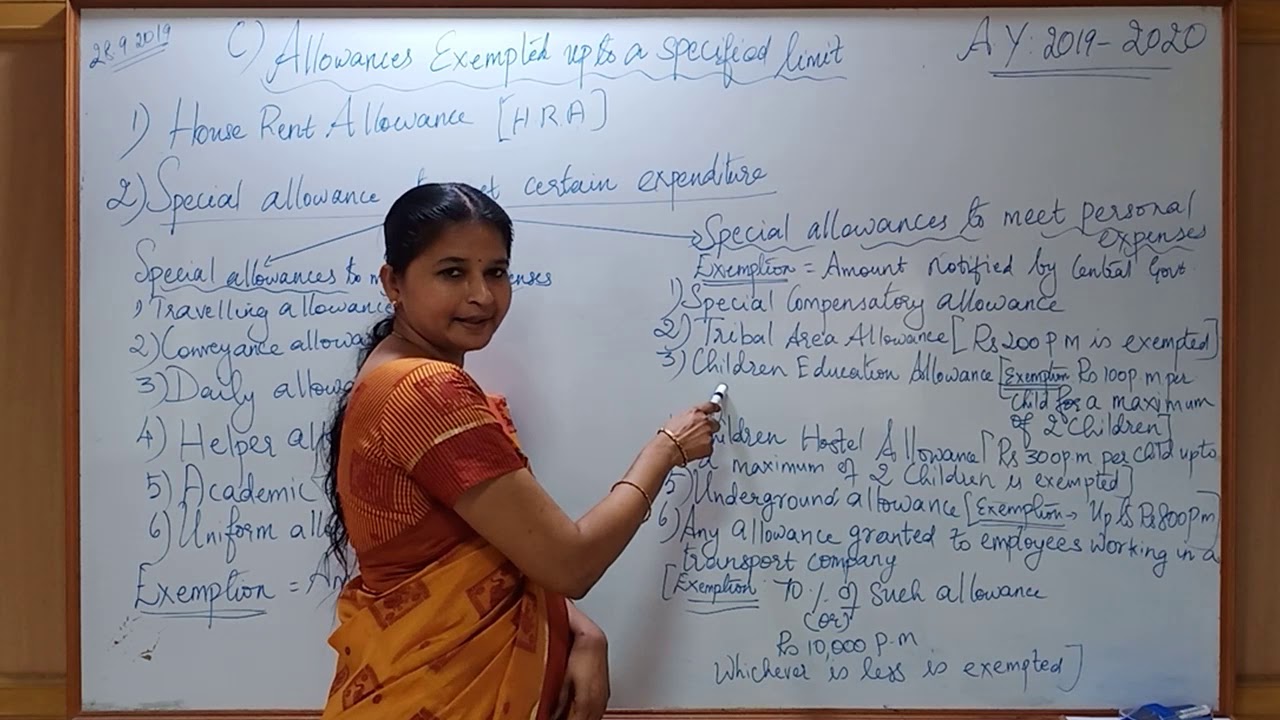 28.9.2019
C) Allowances Exempted upto a specified limit
A Y: 2019-2020
1) House Rent Allowance [H.R.A]
2) Special allowance certain expenditure
Special allowances to
1) Travelling allowance
2) Conveyance
3) Daily
4) Helper
5) Academic
6) Uniform
Exemption =
Special allowances to meet personal
expenses
Exemption = Amount notified by Central Govt.
1) Special Compensatory allowance
2) Tribal Area Allowance [Rs 200 P M is exempted]
3) Children Education Allowance [Exemption Rs 100 p.m per
child for a maximum
of 2 Children]
Hostel Allowance [Rs 300 p m per child upto
a maximum of 2 Children is exempted]
5) Underground allowance [Exemption → Up to Rs 800 Pm]
6) Any allowance granted to employees working in a
transport company
[Exemption 70 % of such allowance
(or)
Rs 10,000 P.M
Whichever is less is exempted]